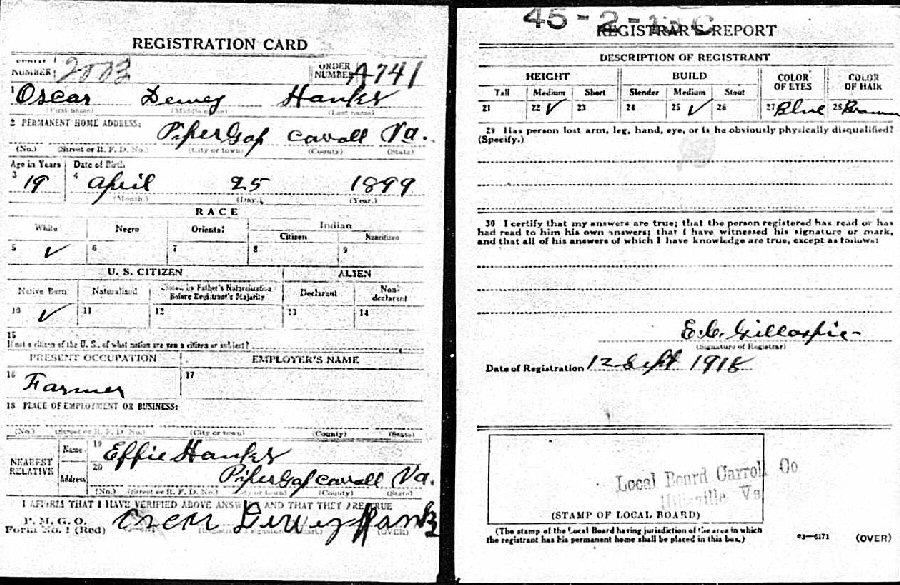 REGISTRATION CARD
SERIAL NUMBER: 2003
ORDER NUMBER A741
1 Oscar Dewey Hanks
(First name) (Middle name) (Last name)
2 PERMANENT HOME ADDRESS:
Piper Gap Carroll Va.
(No.) (Street or R. F. D. No.) (City or town) (County) (State)
Age in Years Date of Birth
3 19 4 April 25 1899
(Month.) (Day.) (Year.)
RACE
White Negro Oriental Indian
Citizen Noncitizen
5 ✓ 6 7 8 9
U. S. CITIZEN ALIEN
Native Born Naturalized Citizen by Father's Naturalization Before Registrant's Majority Declarant Non-declarant
10 ✓ 11 12 13 14
15
If not a citizen of the U. S., of what nation are you a citizen or subject?
PRESENT OCCUPATION EMPLOYER'S NAME
16 Farmer 17
18 PLACE OF EMPLOYMENT OR BUSINESS:
(No.) (Street or R. F. D. No.) (City or town) (County) (State)
NEAREST RELATIVE
Name 19 Effie Hanks
Address 20 Piper Gap Carroll Va.
(No.) (Street or R. F. D. No.) (City or town) (County) (State)
I AFFIRM THAT I HAVE VERIFIED ABOVE ANSWERS AND THAT THEY ARE TRUE
P. M. G. O.
Form No. 1 (Red) Oscar Dewey Hanks
(OVER)
45-2-
REGISTRAR'S REPORT
DESCRIPTION OF REGISTRANT
HEIGHT BUILD COLOR OF EYES COLOR OF HAIR
Tall Medium Short Slender Medium Stout
21 22 ✓ 23 24 25 ✓ 26 27 Blue 28 Brown
29 Has person lost arm, leg, hand, eye, or is he obviously physically disqualified?
(Specify.)
30 I certify that my answers are true; that the person registered has read or has
had read to him his own answers; that I have witnessed his signature or mark,
and that all of his answers of which I have knowledge are true, except as follows:
E. C. Gillaspie
(Signature of Registrar)
Date of Registration 12 Sept 1918
Local Board Carroll Co
Hillsville Va
(STAMP OF LOCAL BOARD)
(The stamp of the Local Board having jurisdiction of the area in which
the registrant has his permanent home shall be placed in this box.)
03—6171 (OVER)